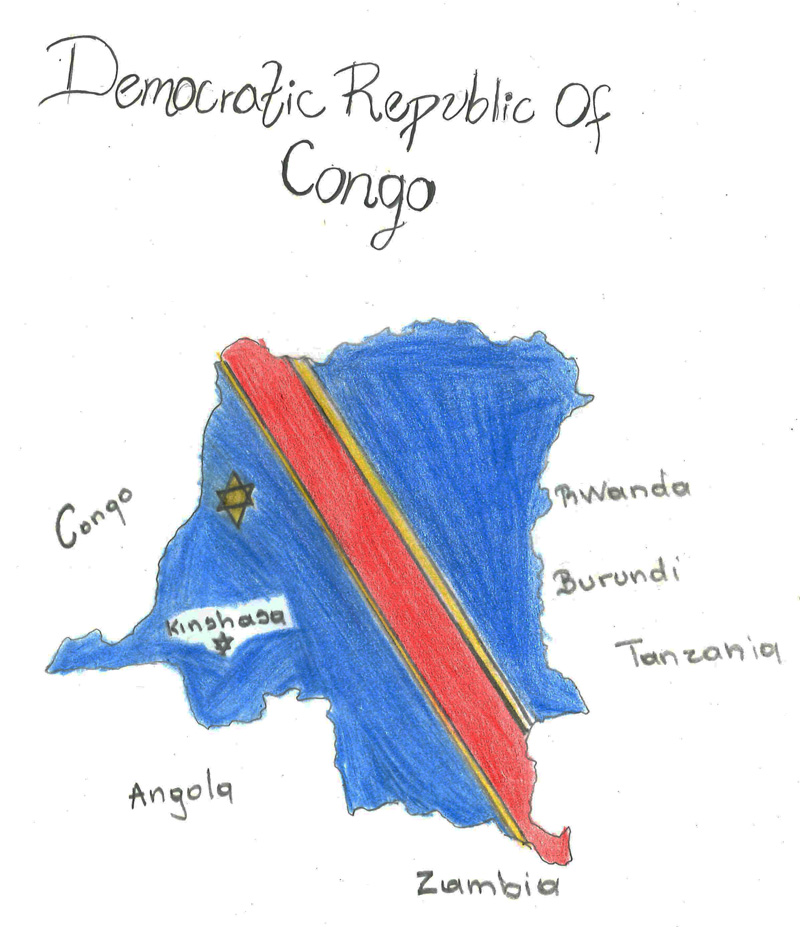 Democratic Republic Of
Congo
Congo
Rwanda
Burundi
Kinshasa
Tanzania
Angola
Zambia